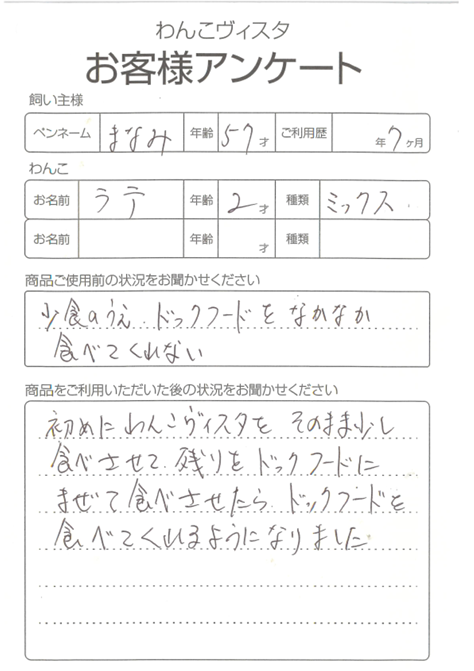 わんこヴィスタ
お客様アンケート
飼い主様
ペンネーム まなみ 年齢 57才 ご利用歴 年7ヶ月
わんこ
お名前 ラテ 年齢 2才 種類 ミックス.
お名前 年齢 才 種類
商品ご使用前の状況をお聞かせください
少食のうえ、ドックフードをなかなか
食べてくれない
商品をご利用いただいた後の状況をお聞かせください
初めにわんこヴィスタを そのまま少し
食べさせて 残りをドックフードに
まぜて食べさせたら、ドックフードを
食べてくれるようになりました